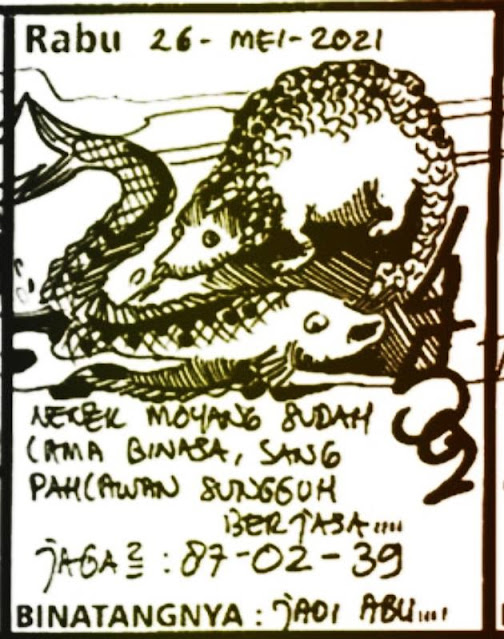 Rabu 26-MEI-2021
NENEK MOYANG SUDAH
LAMA BINASA, SANG
PAHLAWAN SUNGGUH
BERJASA....
JAGA2 : 87-02-39
BINATANGNYA : JADI ABU....